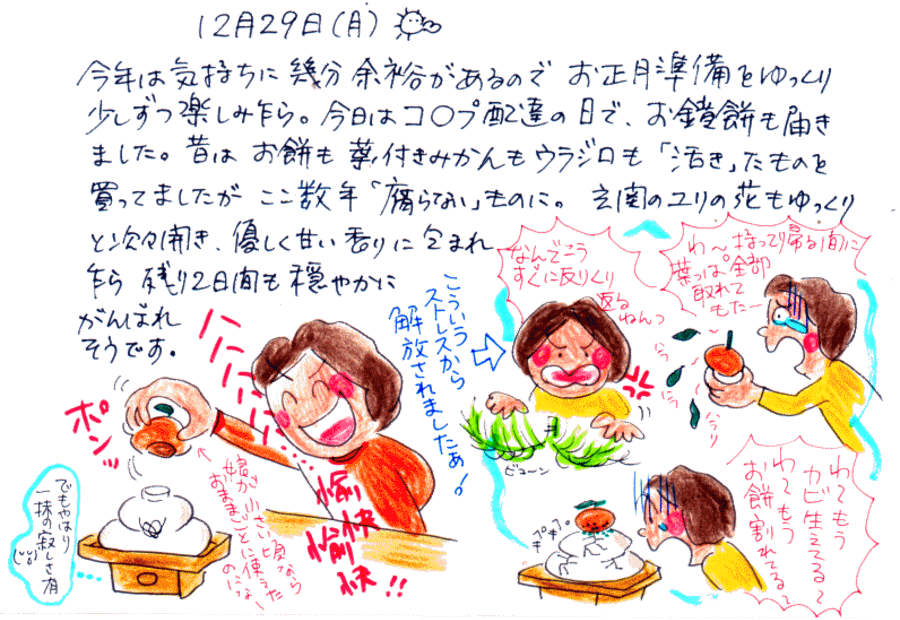 12月29日(月)
今年は気持ちに幾分余裕があるので お正月準備をゆっくり
少しずつ楽しみ乍ら。今日はコ〇プ配達の日で、お鏡餅も届き
ました。昔は お餅も 葉付きみかんもウラジロも「活き」たものを
買ってましたが ここ数年「腐らない」ものに。 玄関のユリの花もゆっくり
と次々開き、優しく甘い香りに包まれ
乍ら 残り2日間も穏やかに
がんばれ
そうです。
なんでこう
すぐに反りくり
返る
ねんっ
わ〜 持って帰る間に
葉っぱ全部
取れて
もたー
こういう
ストレスから
解放されましたぁ!
ハハハハハ
ポンッ
愉快
愉快!!
娘が小さい頃なら
おままごとに使えた
のになぁ
でもやはり
一抹の寂しさ有
ビューン
わてもう
カビ生えてる〜
わてもう
お餅 割れてる〜